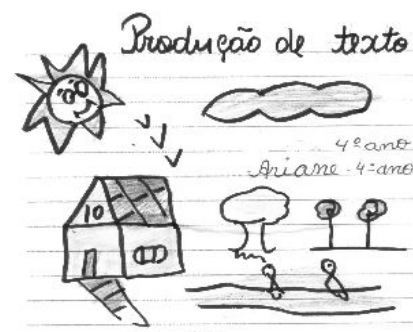 Produção de texto
4º ano
Ariane - 4º ano
10